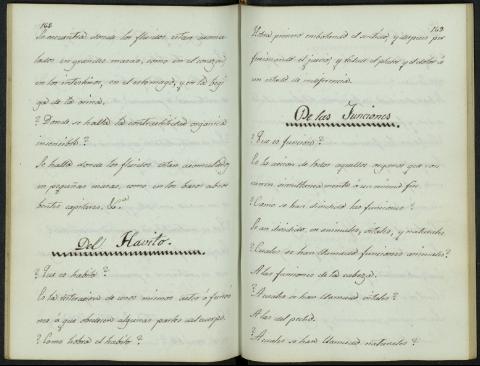 162
Se encuentra donde los fluidos estan acumu
lados en grandes masas, como en el corazon,
en los intestinos, en el estomago, y en la beji
ga de la orina.
? Donde se halla la contractilidad organica
insensible?
Se halla donde los fluidos estan acumulados
en pequeñas masas, como en los vasos absor
bentes capilares, &c.
Del Havito.
? Que es habito?
Es la reiteracion de unos mismos actos ó fenóm
nos, á que obedecen algunas partes del cuerpo.
? Como hobra el habito?
163
Hobra primero embotando el sentido, y despues per
feccionando el juicio, y reduce el placer y el dolor á
un estado de indiferencia.
De las Funciones.
? Que es funcion?
Es la accion de todos aquellos organos que con
curren simultaneamente á un mismo fin.
? Como se han dividido las funciones?
Se han dividido, en animales, vitales, y naturales
? Cuales se han llamado funciones animales?
A las funciones de la cabeza.
? A cuales se han llamado vitales?
A las del pecho.
? A cuales se han llamado naturales?